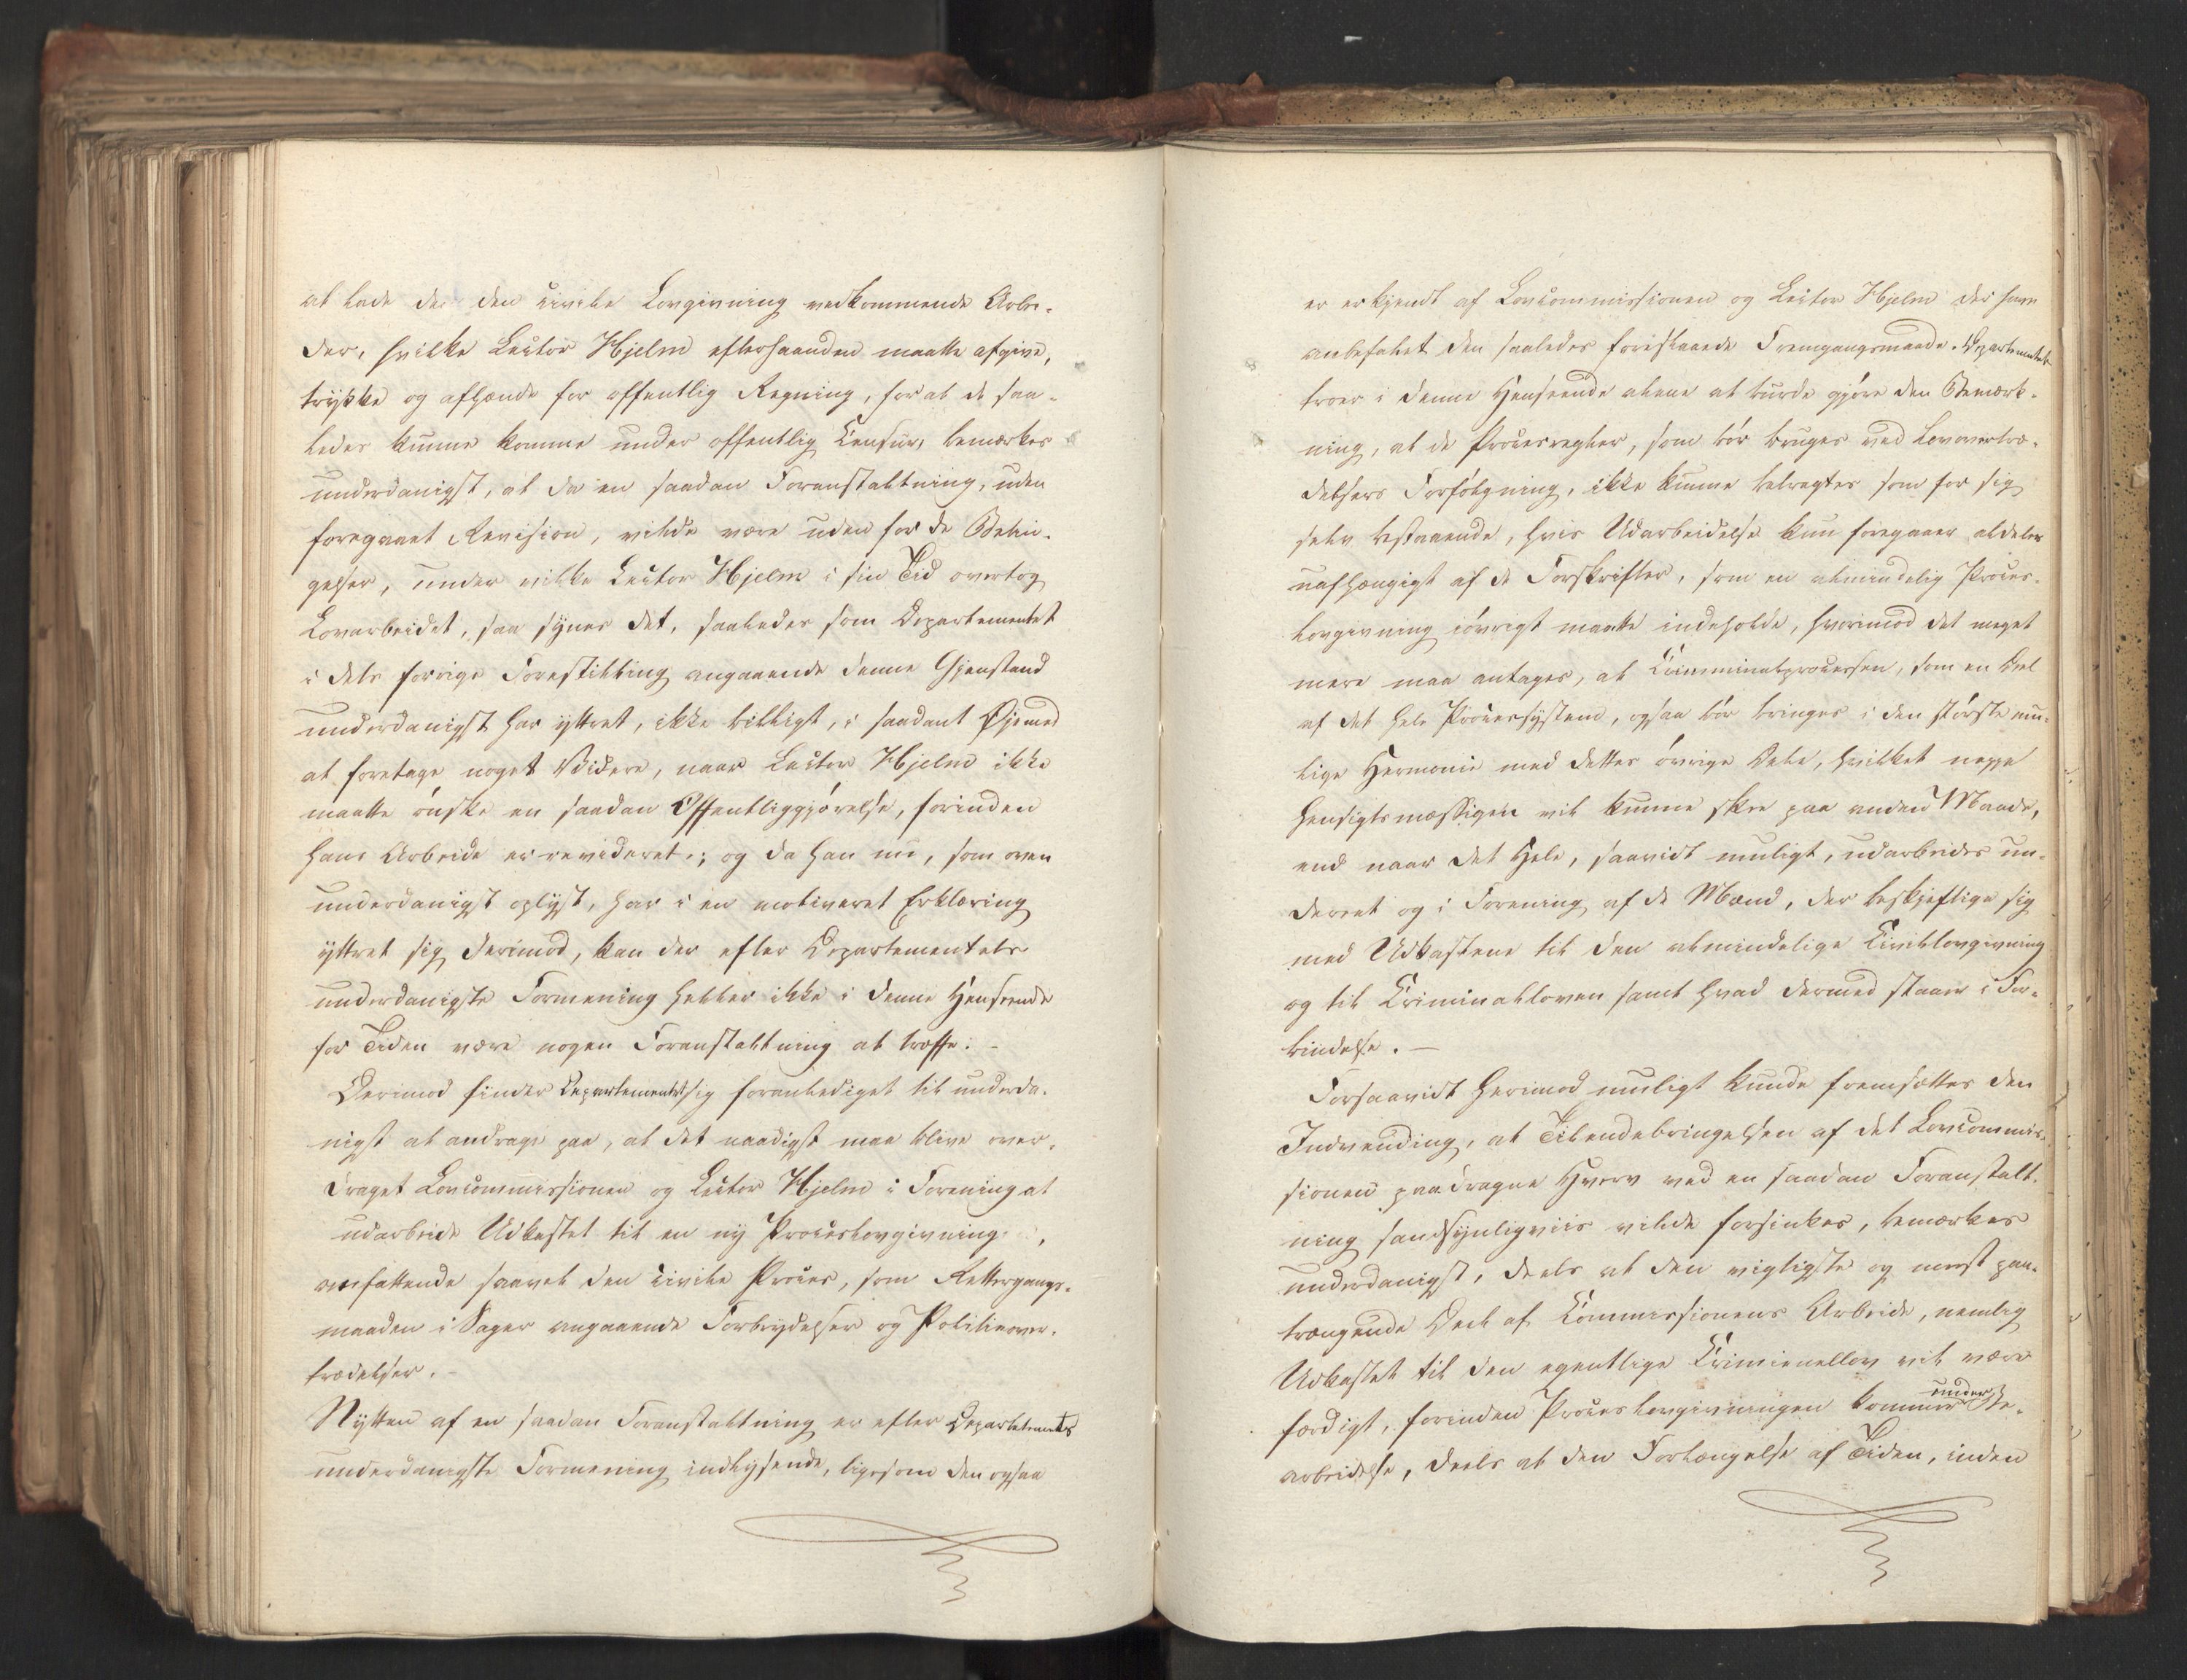 at lade de den civile Lovgivning vedkommende Arbei-
der, hvilke Lector Hjelm efterhaanden maatte afgive,
trykke og afhænde for offentlig Regning, for at de saa-
ledes kunne komme under offentlig Censur, bemærkes
underdanigst, at da en saadan Foranstaltning, uden
foregaaet Revision, vilde være uden for de Betin-
gelser, under hvilke Lector Hjelm i sin Tid overtog
Lovarbeidet, saa synes det, saaledes som Departementet
i dets forrige Forestilling angaaende denne Gjenstand
underdanigst har yttret, ikke billigt, i saadant Øjemed
at foretage noget Videre, naar Lector Hjelm ikke
maatte ønske en saadan Offentliggjørelse, forinden
hans Arbeide er revideret; og da han nu, som oven
underdanigst oplyst, har i en motiveret Erklæring
yttret sig derimod, kan der efter Departementets
underdanigste Formening heller ikke i denne Henseende
for Tiden være nogen Foranstaltning at træffe. -
Derimod finder Departementet sig foranlediget til underda-
nigst at andrage paa, at det naadigst maa blive over-
draget Lovcommissionen og Lector Hjelm i Forening at
udarbeide Udkastet til en ny Proceslovgivning,
omfattende saavel den civile Proces, som Rettergangs-
maaden i Sager angaaende Forbrydelser og Politieover-
trædelser. -
Nytten af en saadan Foranstaltning er efter Departementets
underdanigste Formening indlysende, ligesom den ogsaa
er erkjendt af Lovcommissionen og Lector Hjelm der have
anbefalet den saaledes foreslaaede Fremgangsmaade. Departementet
troer i denne Henseende alene at burde gjøre den Bemærk-
ning, at de Procesregler, som bør bruges ved Lovovertræ-
delsers Forfølgning, ikke kunne betragtes som for sig
selv bestaaende, hvis Udarbeidelse kun foregaaer aldeles
uafhængigt af de Forskrifter, som en almindelig Proces-
lovgivning iøvrigt maatte indeholde, hvorimod det meget
mere maa antages, at Criminalprocessen, som en Deel
af det hele Processystem, ogsaa bør bringes i den størst mu-
lige Harmonie med dettes øvrige Dele, hvilket neppe
hensigtsmæssigen vil kunne skee paa anden Maade,
end naar det Hele, saavidt muligt, udarbeides un-
der eet og i Forening af de Mænd, der beskjeftige sig
med Udkastene til den almindelige Civillovgivning
og til Criminalloven samt hvad dermed staaer i For-
bindelse. -
Forsaavidt herimod muligt kunde fremsættes den
Indvending, at Tilendebringelsen af det Lovcommis-
sionen paadragne Hverv ved en saadan Foranstalt-
ning sandsynligviis vilde forsinkes, bemærkes
underdanigst, deels at den vigtigste og meest paa-
trængende Deel af Commissionens Arbeide, nemlig
Udkastet til den egentlige Criminellov vil være
færdigt, forinden Proceslovgivningen kommer under Be-
arbeidelse, deels at den Forlængelse af Tiden, inden